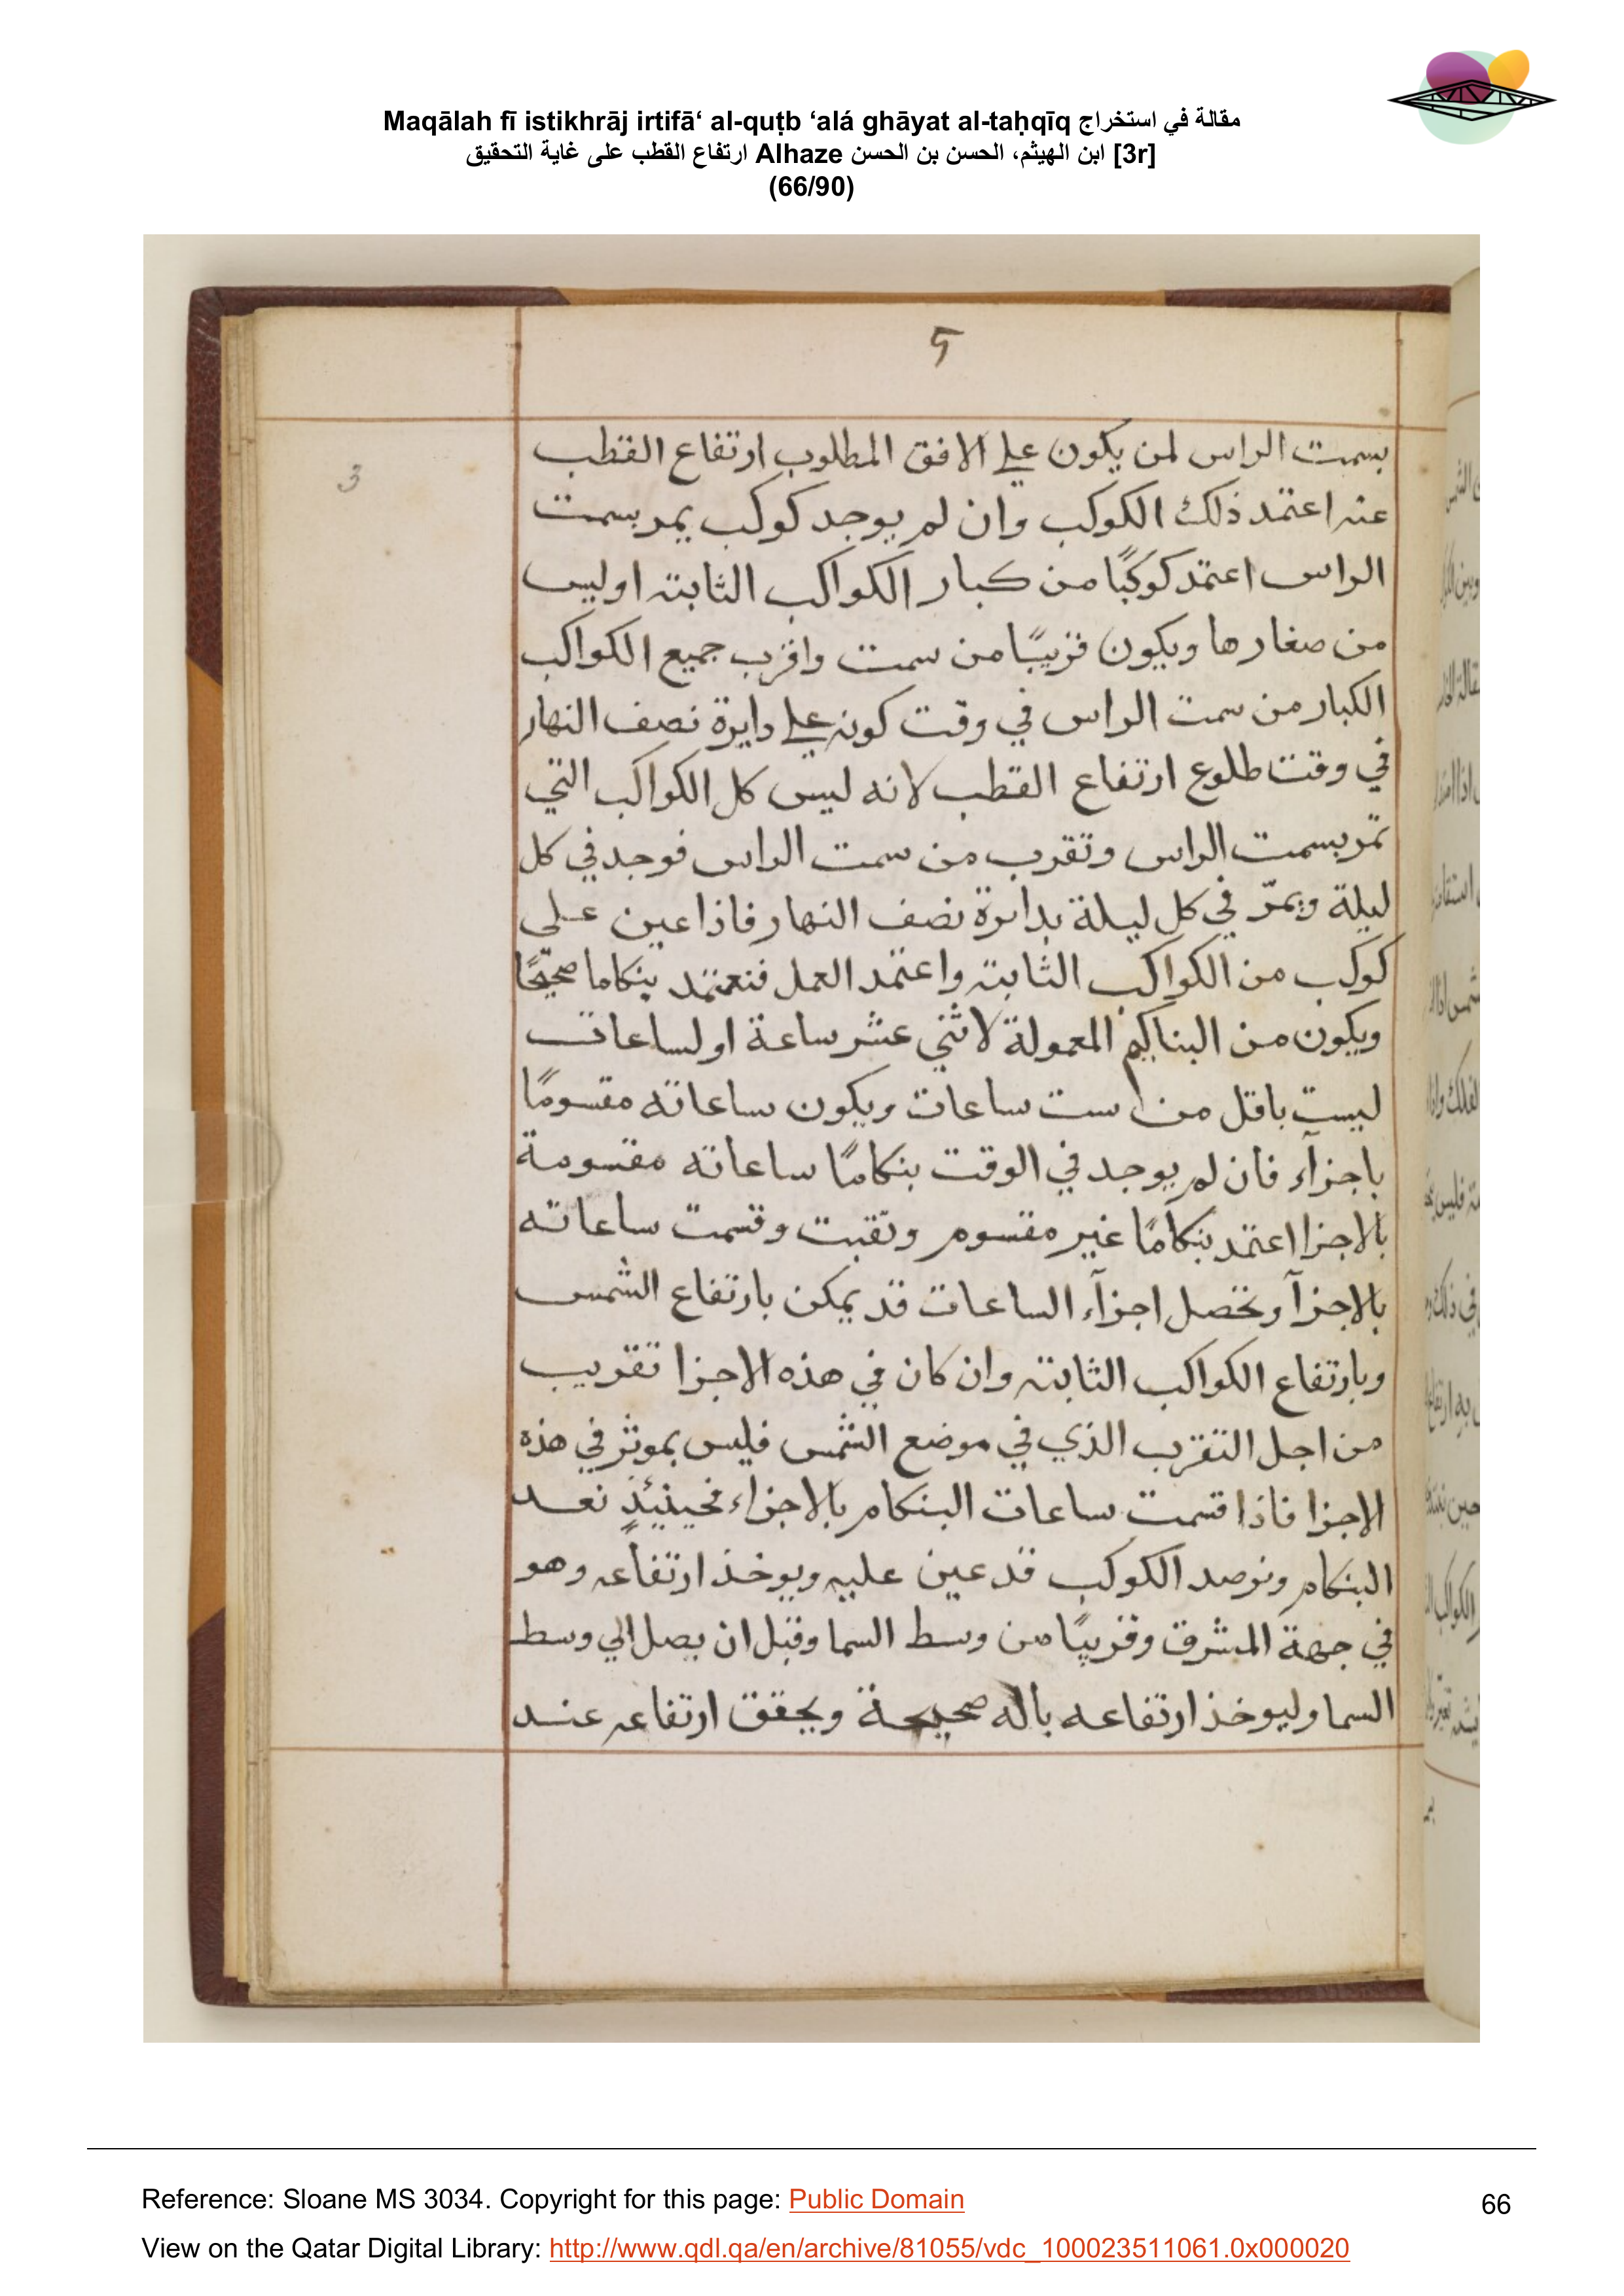 Maqālah fī istikhrāj irtifā‘ al-quṭb ‘alá ghāyat al-taḥqīq مقالة في استخراج
ارتفاع القطب على غاية التحقيق Alhaze ابن الهيثم، الحسن بن الحسن [3r]
(66/90)
5
3
بسمت الراس لمن يكون على الافق المطلوب ارتفاع القطب
عنه اعتمد ذلك الكوكب وان لم يوجد كوكب يمر بسمت
الراس اعتمد كوكبًا من كبار الكواكب الثابتة او ليس
من صغارها ويكون قريبًا من سمت واقرب جميع الكواكب
الكبار من سمت الراس في وقت كونه على دايرة نصف النهار
في وقت طلوع ارتفاع القطب لانه ليس كل الكواكب التي
تمر بسمت الراس وتقرب من سمت الراس فوجد في كل
ليلة ويمرّ في كل ليلة بدايرة نصف النهار فاذا عين على
كوكب من الكواكب الثابتة واعتمد العمل فنعتمد بنكاما صحيحًا
ويكون من البناكيم المعمولة لاثني عشر ساعة او لساعات
ليست باقل من ست ساعات ويكون ساعاته مقسومًا
باجزآء فان لم يوجد في الوقت بنكامًا ساعاته مقسومة
بالاجزا اعتمد بنكامًا غير مقسوم ونقبت وقسمت ساعاته
بالاجزآ وتحصل اجزآء الساعات قد يمكن بارتفاع الشمس
وبارتفاع الكواكب الثابتة وان كان في هذه الاجزا تقريب
من اجل التقرب الذي في موضع الشمس فليس بموثر في هذه
الاجزا فاذا قسمت ساعات البنكام بالاجزاء فحينيئذٍ نعد
البنكام ونرصد الكوكب قد عين عليه ويوخذ ارتفاعه وهو
في جهة المشرق وقريبًا من وسط السما وقبل ان يصل الي وسط
السما وليوخذ ارتفاعه باله صحيحة ويحقق ارتفاعه عند
Reference: Sloane MS 3034. Copyright for this page: Public Domain
66
View on the Qatar Digital Library: http://www.qdl.qa/en/archive/81055/vdc_100023511061.0x000020